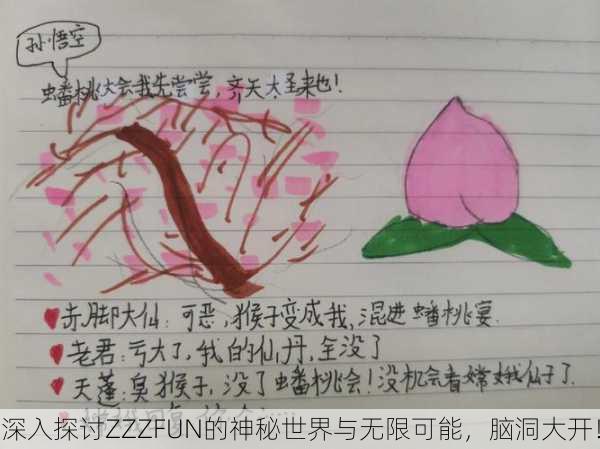 孙悟空
蟠桃大会我先尝尝，齐天大圣来也！
赤脚大仙：可恶，猴子变成我，混进蟠桃宴.
老君：亏大了，我的仙丹，全没了
天蓬：臭猴子，没了蟠桃会！没机会看嫦娥仙子了.
深入探讨ZZZFUN的神秘世界与无限可能，脑洞大开！